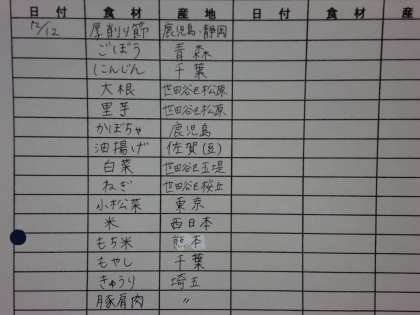 日付 食材 産地 日付 食材 産
12/12 厚削り節 鹿児島・静岡
ごぼう 青森
にんじん 千葉
大根 世田谷区松原
里芋 世田谷区松原
かぼちゃ 鹿児島
油揚げ 佐賀(豆)
白菜 世田谷区玉堤
ねぎ 世田谷区桜丘
小松菜 東京
米 西日本
もち米 熊本
もやし 千葉
きゅうり 埼玉
豚肩肉 〃